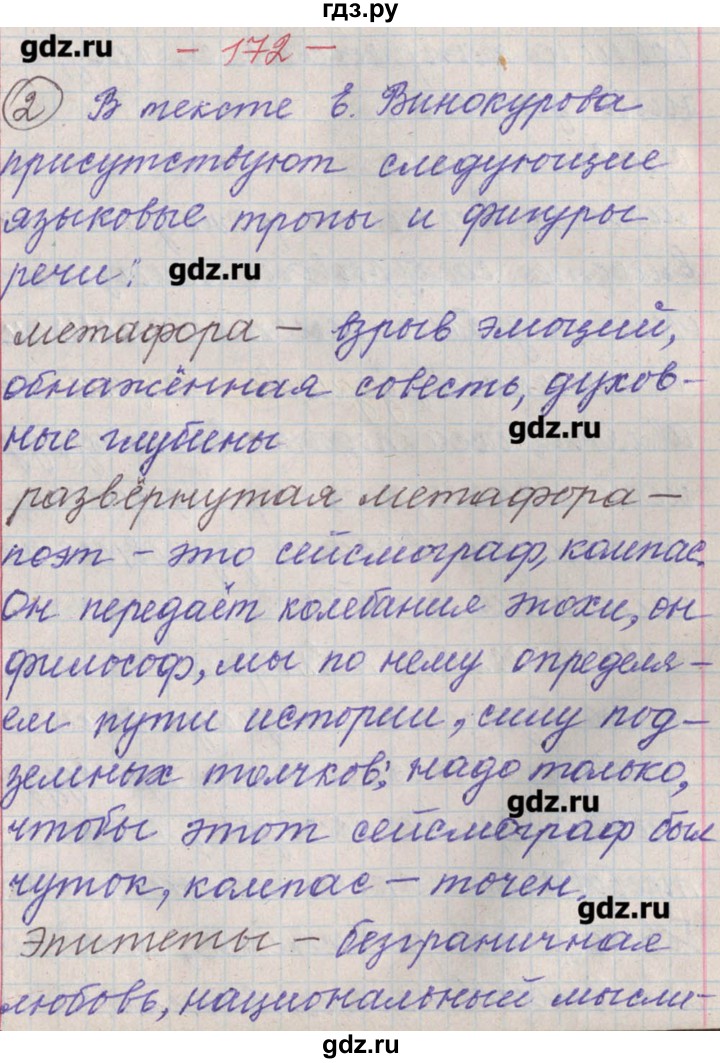 гдз.ру
gdz.ru
– 172 –
2 В тексте Е. Винокурова
присутствуют следующие
языковые тропы и фигуры
речи:
gdz.ru
метафора – взрыв эмоций,
обнажённая совесть, духов-
ные глубины
gdz.ru
развёрнутая метафора –
поэт – это сейсмограф, компас.
Он передаёт колебания эпохи, он
философ, мы по нему определя-
ем пути истории, силу под-
земных толчков; надо только,
gdz.ru
чтобы этот сейсмограф был
чуток, компас – точен.
gdz.ru
Эпитеты – безграничная
любовь, национальный мысли-
gdz.ru